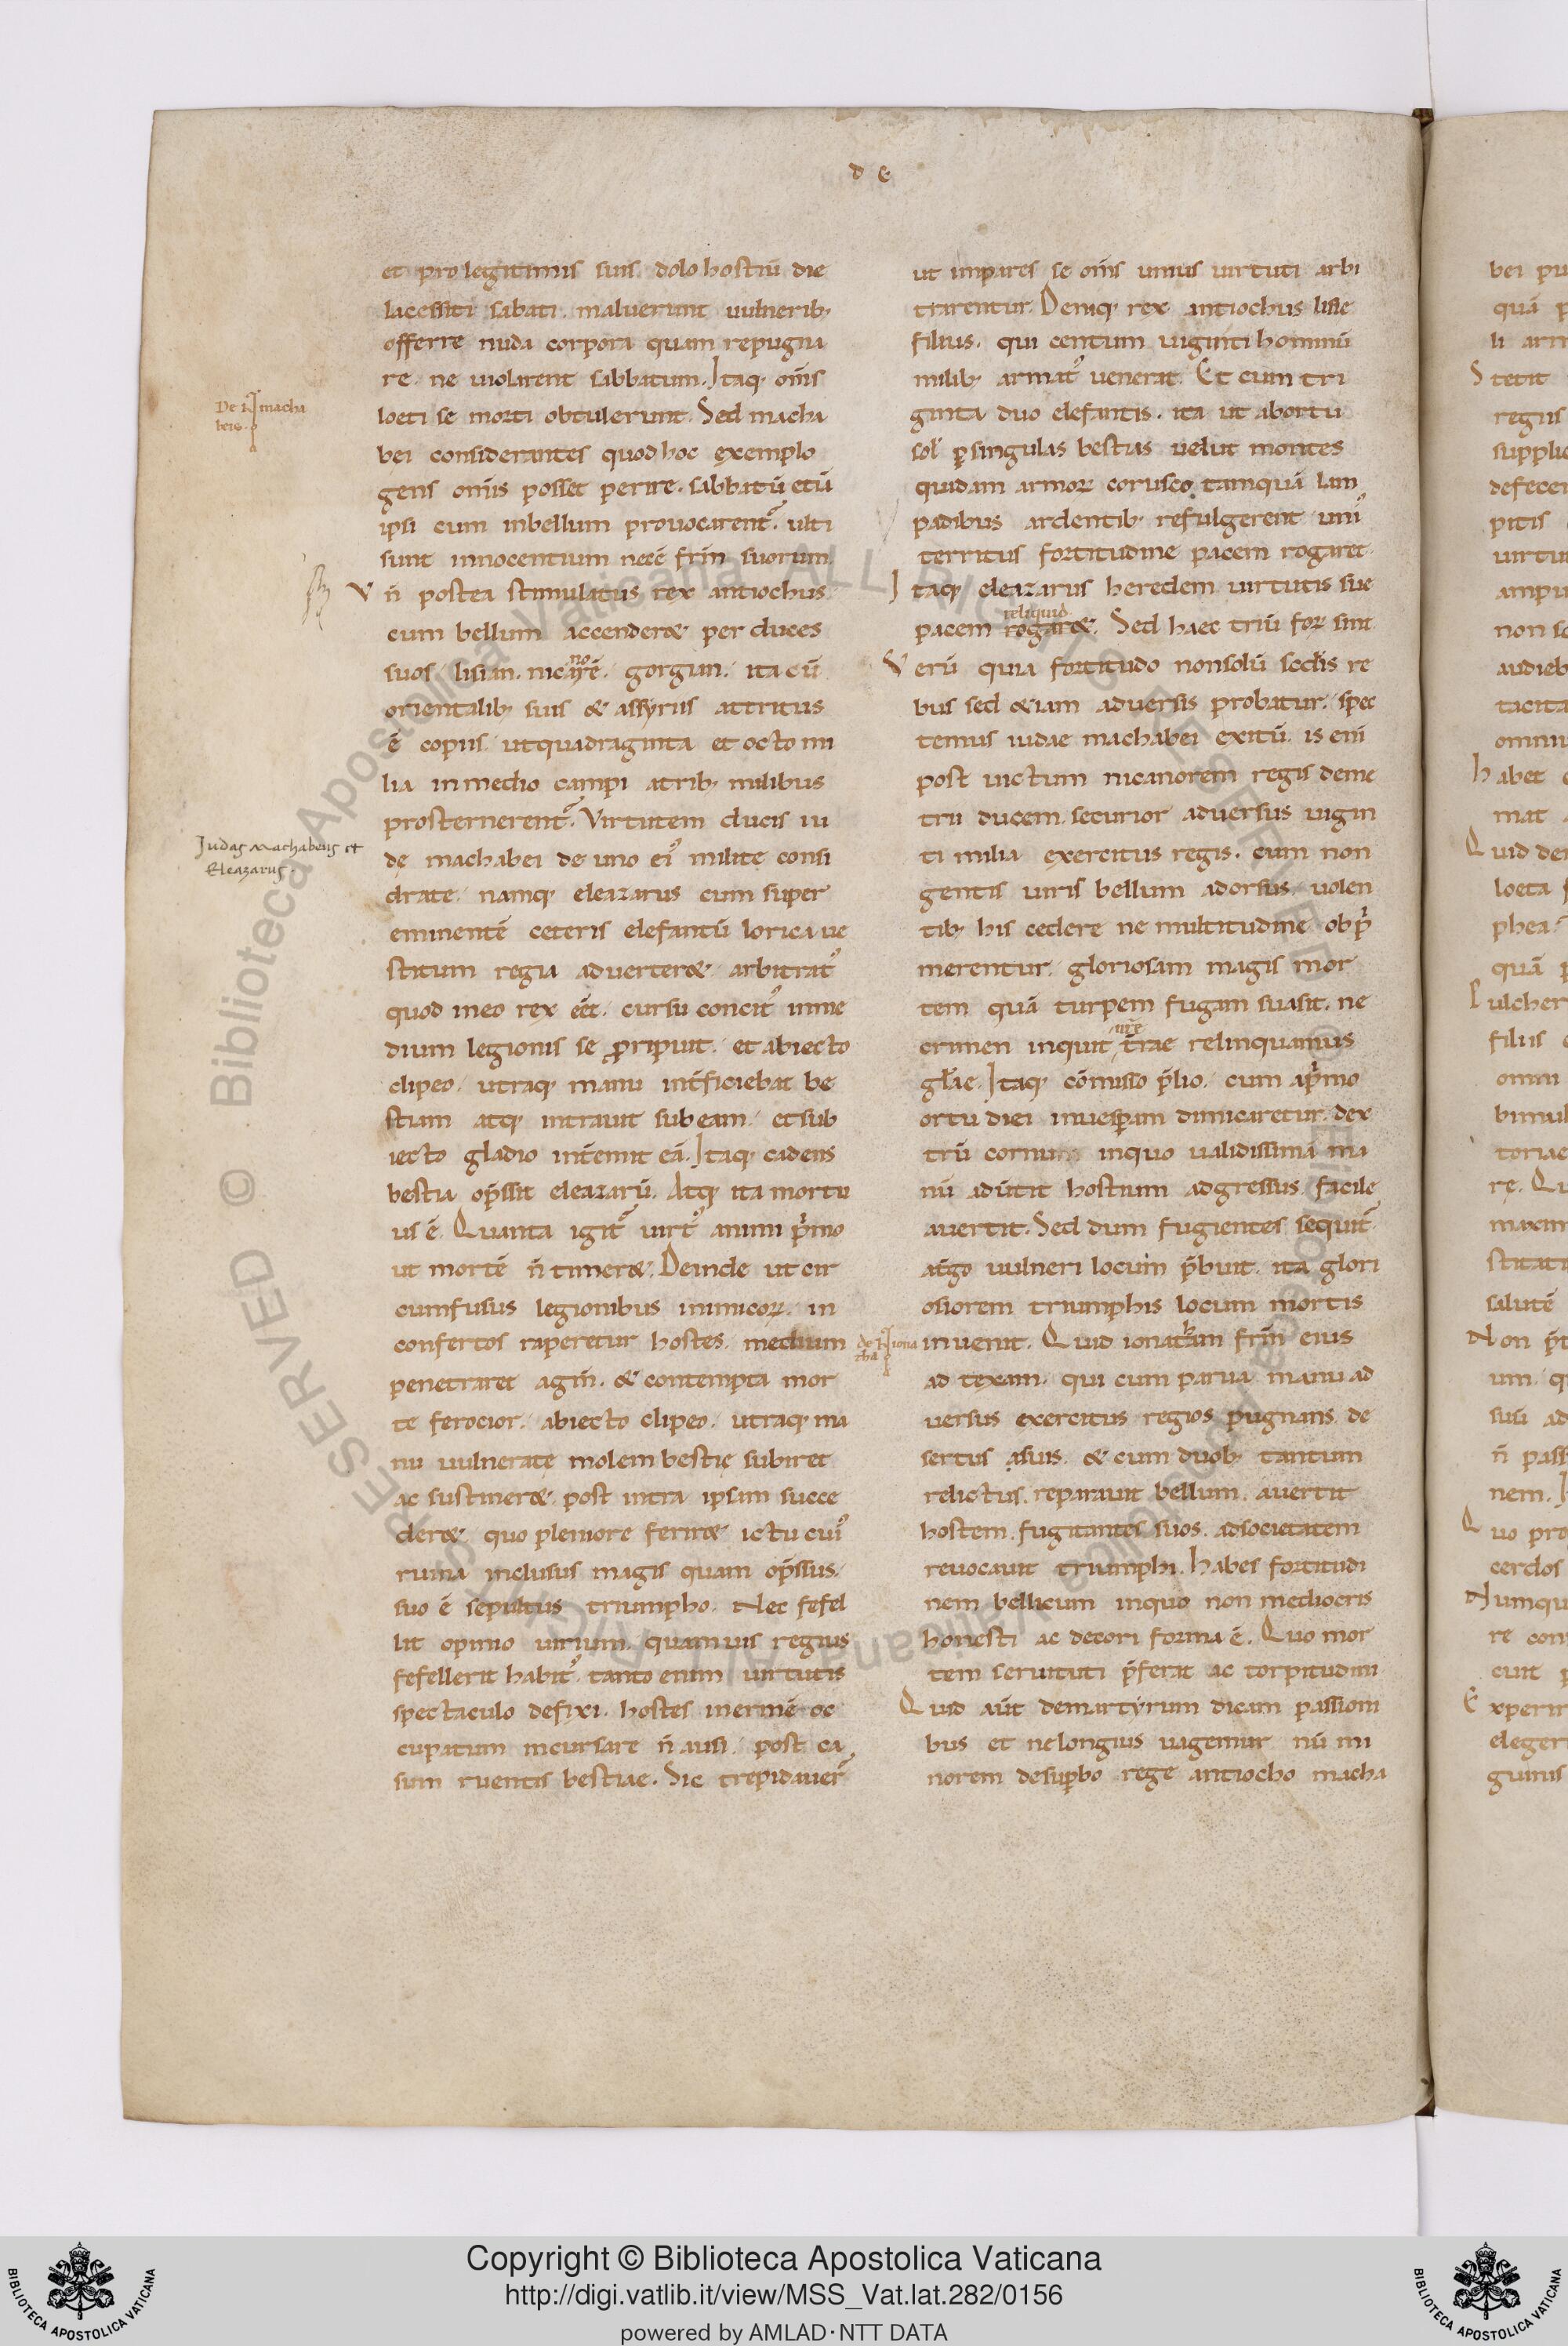 d e
et pro legitimis suis dolo hostiū die
lacessiti sabati. maluerunt uulnerib;
offerre nuda corpora quam repugna
re. ne uiolarent sabbatum. Itaq; om̄s
De macha
beis.
loeti se morti obtulerunt. Sed macha
bei considerantes quod hoc exemplo
gens om̄is posset perire. sabbatū etiā
ipsi cum inbellum prouocarent᷑. ulti
sunt innocentium necē fr̄m suorum.
V n̄ postea stimulatus rex antiochus
cum bellum accender& per duces
suos. lisian. nicanorē. gorgian. ita cū
orientalib; suis & assyriis attritus
ē copiis. utquadraginta et octo mi
lia inmedio campi atrib; milibus
prosternerent᷑. Virtutem ducis iu
Judas Machabeus et
Eleazarus.
de machabei de uno ei᷒ milite consi
drate. namq; eleazarus cum super
eminentē ceteris elefantū lorica ue
stitum regia aduerter& arbitrat᷒
quod ineo rex eēt. cursu concit᷒ inme
dium legionis se ꝓripuit. et abiecto
clipeo. utraq; manu int̄ficiebat be
stiam atq; intrauit sub eam. etsub
iecto gladio int̄emit eā. Itaq; cadens
bestia op̄ssit eleazarū. Atq; ita mortu
us ē. Quanta igit᷑ uirt᷒ animi p̄mo
ut mortē n̄ timer&. Deinde ut cir
cumfusus legionibus inimicoꝝ. in
confertos raperetur hostes. medium
penetraret agm̄. & contempta mor
te ferocior. abiecto clipeo. utraq; ma
nu uulneratę molem bestię subiret
ac sustiner&. post intra ipsam succe
der&. quo pleniore ferir& ictu cui᷒
ruina inclusus magis quam op̄ssus.
suo ē sepultus triumpho. Nec fefel
lit opinio uirium. quamuis regius
fefellerit habit᷒. tanto enim uirtutis
spectaculo defixi. hostes inermē oc
cupatum incursare n̄ ausi. post ca
sum ruentis bestiae. Sic trepidauer̄
ut impares se om̄s unius uirtuti arbi
trarentur. Deniq; rex antiochus lisie
filius. qui centum uiginti hominū
milib; armat᷒ uenerat. Et cum tri
ginta duo elefantis. ita ut abortu
sol' ꝑsingulas bestias uelut montes
quidam armoꝝ corusco tamquā lam
padibus ardentib; refulgerent uni᷒
territus fortitudine pacem rogaret.
I taq; eleazarus heredem uirtutis sue
reliquid
pacem rogar&. Sed haec triū foꝝ sint.
V erū quia fortitudo nonsolū secdis re
bus sed &iam aduersis probatur. spec
temus iudae machabei exitū. is eni
post uictum nicanorem regis deme
trii ducem. securior aduersus uigin
ti milia exercitus regis. cum non
gentis uiris bellum adorsus. uolen
tib; his cedere ne multitudine obp̄
merentur. gloriosam magis mor
tem quā turpem fugam suasit. ne
nr̄e
crimen inquit tr̄ae relinquamus
gl̄ae. Itaq; cōmisso p̄lio. cum ap̄mo
ortu diei inuesꝑam dimicaretur. dex
trū cornum inquo ualidissimā ma
nū adūtit hostium adgressus. facile
auertit. Sed dum fugientes sequit᷑
at̄go uulneri locum p̄buit. ita glori
osiorem triumphis locum mortis
de iona
tha
inuenit. Quid ionathan fr̄m eius
ad texam. qui cum parua manu ad
uersus exercitus regios pugnans. de
sertus asuis. & cum duob; tantum
relictus. reparauit bellum. auertit
hostem. fugitantes suos. adsocietatem
reuocauit triumphi. habes fortitudi
nem bellicum inquo non mediocris
honesti ac decori forma ē. Quo mor
tem seruituti p̄ferat ac torpitudini
Q uid aūt demartyrum dicam passioni
bus et nelongius uagemur nū mi
norem desuꝑbo rege antiocho macha
Copyright © Biblioteca Apostolica Vaticana
http://digi.vatlib.it/view/MSS_Vat.lat.282/0156
powered by AMLAD·NTT DATA